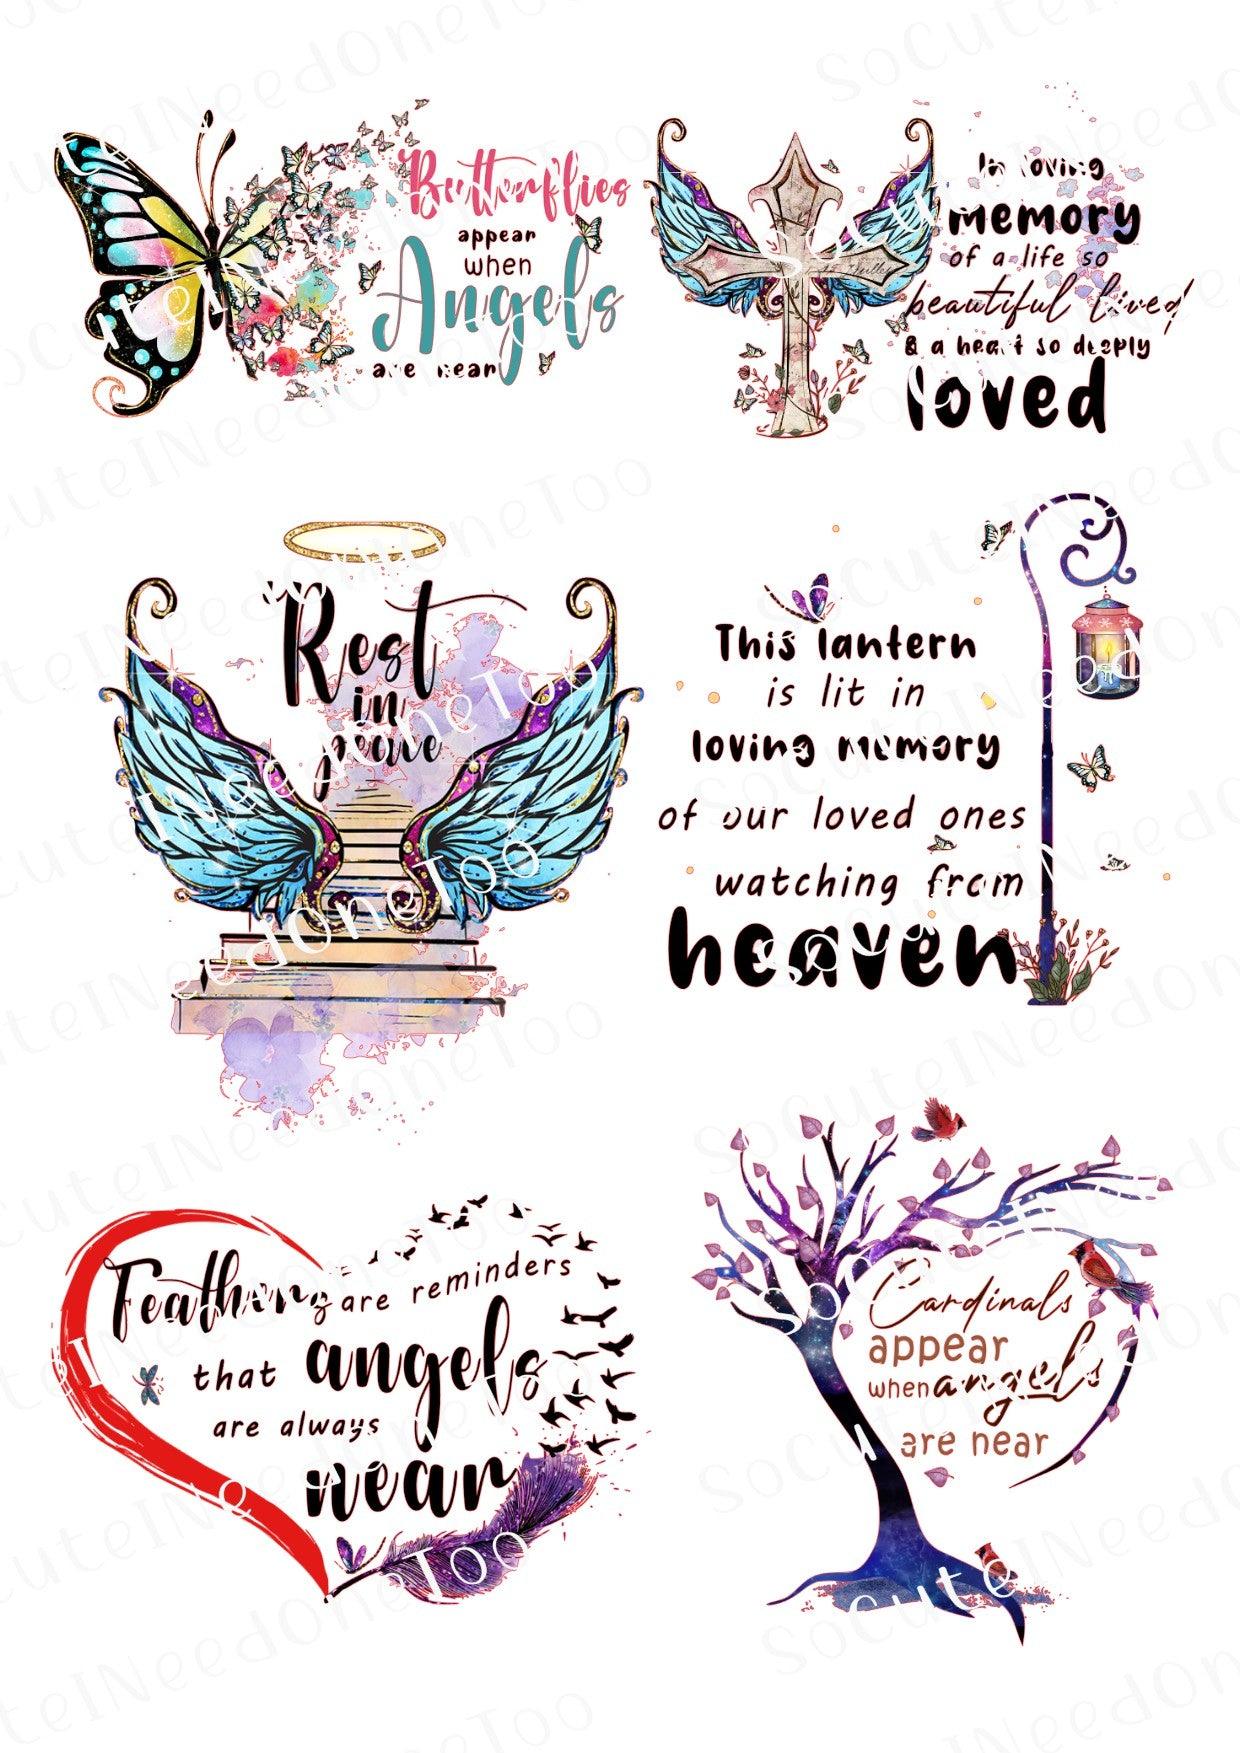 Butterflies
appear
when
Angels
are near
In loving
memory
of a life so
beautiful lived
& a heart so deeply
loved
Rest
in
peace
This lantern
is lit in
loving memory
of our loved ones
watching from
heaven
Feathers are reminders
that angels
are always
near
Cardinals
appear
when angels
are near
SoCuteINeedOneToo
SoCuteINeedOneToo
SoCuteINeedOneToo
SoCuteINeedOneToo